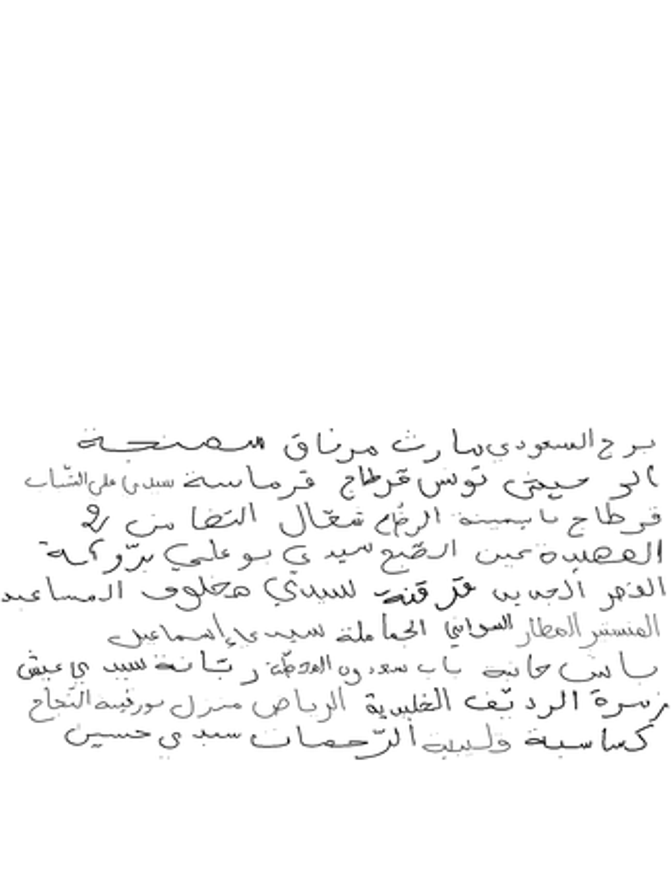 برج السعودي مارث مرناق ممنجة
الرحيمي تونس قرطاج قرماسة سيدي علي الشباب
قرطاج ياسمينة الرضاع شغال التضامن 2
سيدي بو علي
القصر الجديد قرقنة سيدي مخلوف المساعيد
المنستير المطار السواني الحمائلة سيدي إسماعيل
باش حانبة باب سعدون المحطة رتانة سيدي عيش
زهرة الرديف الخليدية الرياض منزل بورقيبة النجاح
كساسبة وليبية الرحمات سيدي حسين